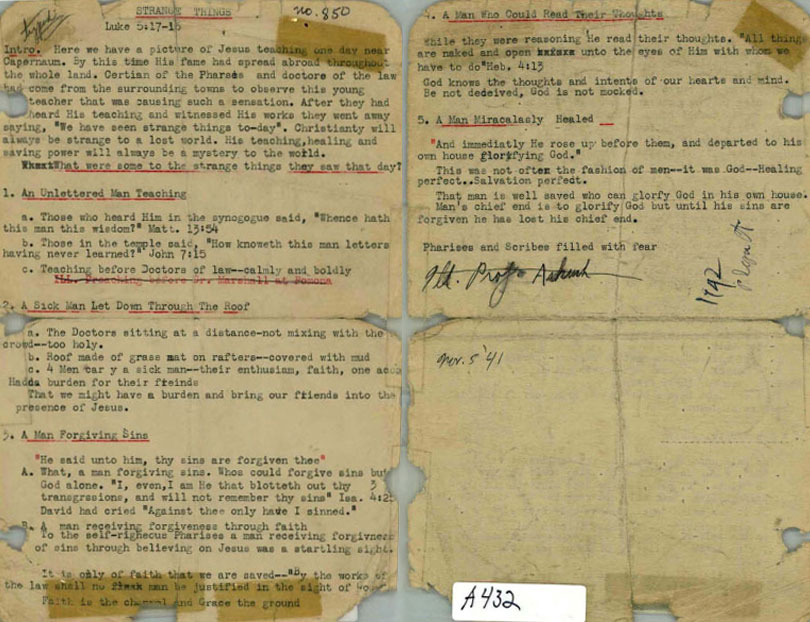 STRANGE THINGS
no. 850
typed
Luke 5:17-16
Intro. Here we have a picture of Jesus teaching one day near
Capernaum. By this time His fame had spread abroad throughout
the whole land. Certian of the Pharses and doctore of the law
had come from the surrounding towns to observe this young
teacher that was causing such a sensation. After they had
heard His teaching and witnessed His works they went away
saying, "We have seen strange things to-day". Christianty will
always be strange to a lost world. His teaching,healing and
saving power will always be a mystery to the world.
What were some to the strange things they saw that day?
1. An Unlettered Man Teaching
a. Those who heard Him in the synogogue said, "Whence hath
this man this wisdom?" Matt. 13:54
b. Those in the temple said, "How knoweth this man letters
having never learned?" John 7:15
c. Teaching before Doctors of law--calmly and boldly
Ill. Preaching before Dr. Marshall at Pomona
2. A Sick Man Let Down Through The Roof
a. The Doctors sitting at a distance-not mixing with the
crowd--too holy.
b. Roof made of grass mat on rafters--covered with mud
c. 4 Men car y a sick man--their enthusiam, faith, one
Hadda burden for their freinds
That we might have a burden and bring our friends into the
presence of Jesus.
3. A Man Forgiving Sins
"He said unto him, thy sins are forgiven thee"
A. What, a man forgiving sins. Whos could forgive sins but
God alone. "I, even,I am He that blotteth out thy 3
transgrssions, and will not remember thy sins" Isa. 4:25
David had cried "Against thee only have I sinned."
B. A man receiving forgiveness through faith
To the self-righeous Pharises a man receiving forgivness
of sins through believing on Jesus was a startling sight.
It is only of faith that we are saved--"By the works of
the law shall no man be justified in the sight of
Faith is the channel and Grace the ground
4. A Man Who Could Read Their Thoughts
While they were reasoning He read their thoughts. "All things
are naked and open unto the eyes of Him with whom we
have to do"Heb. 4:13
God knows the thoughts and intents of our hearts and mind.
Be not dedeived, God is not mocked.
5. A Man Miracalasly Healed
"And immediatly He rose up before them, and departed to his
own house glorifying God."
This was not often the fashion of men--it was God--Healing
perfect..Salvation perfect.
That man is well saved who can glorfy God in his own house.
Man's chief end is to glorify God but until his sins are
forgiven he has lost his chief end.
Pharises and Scribes filled with fear
Ill. Prof
1792
Nov. 5 '41
A432